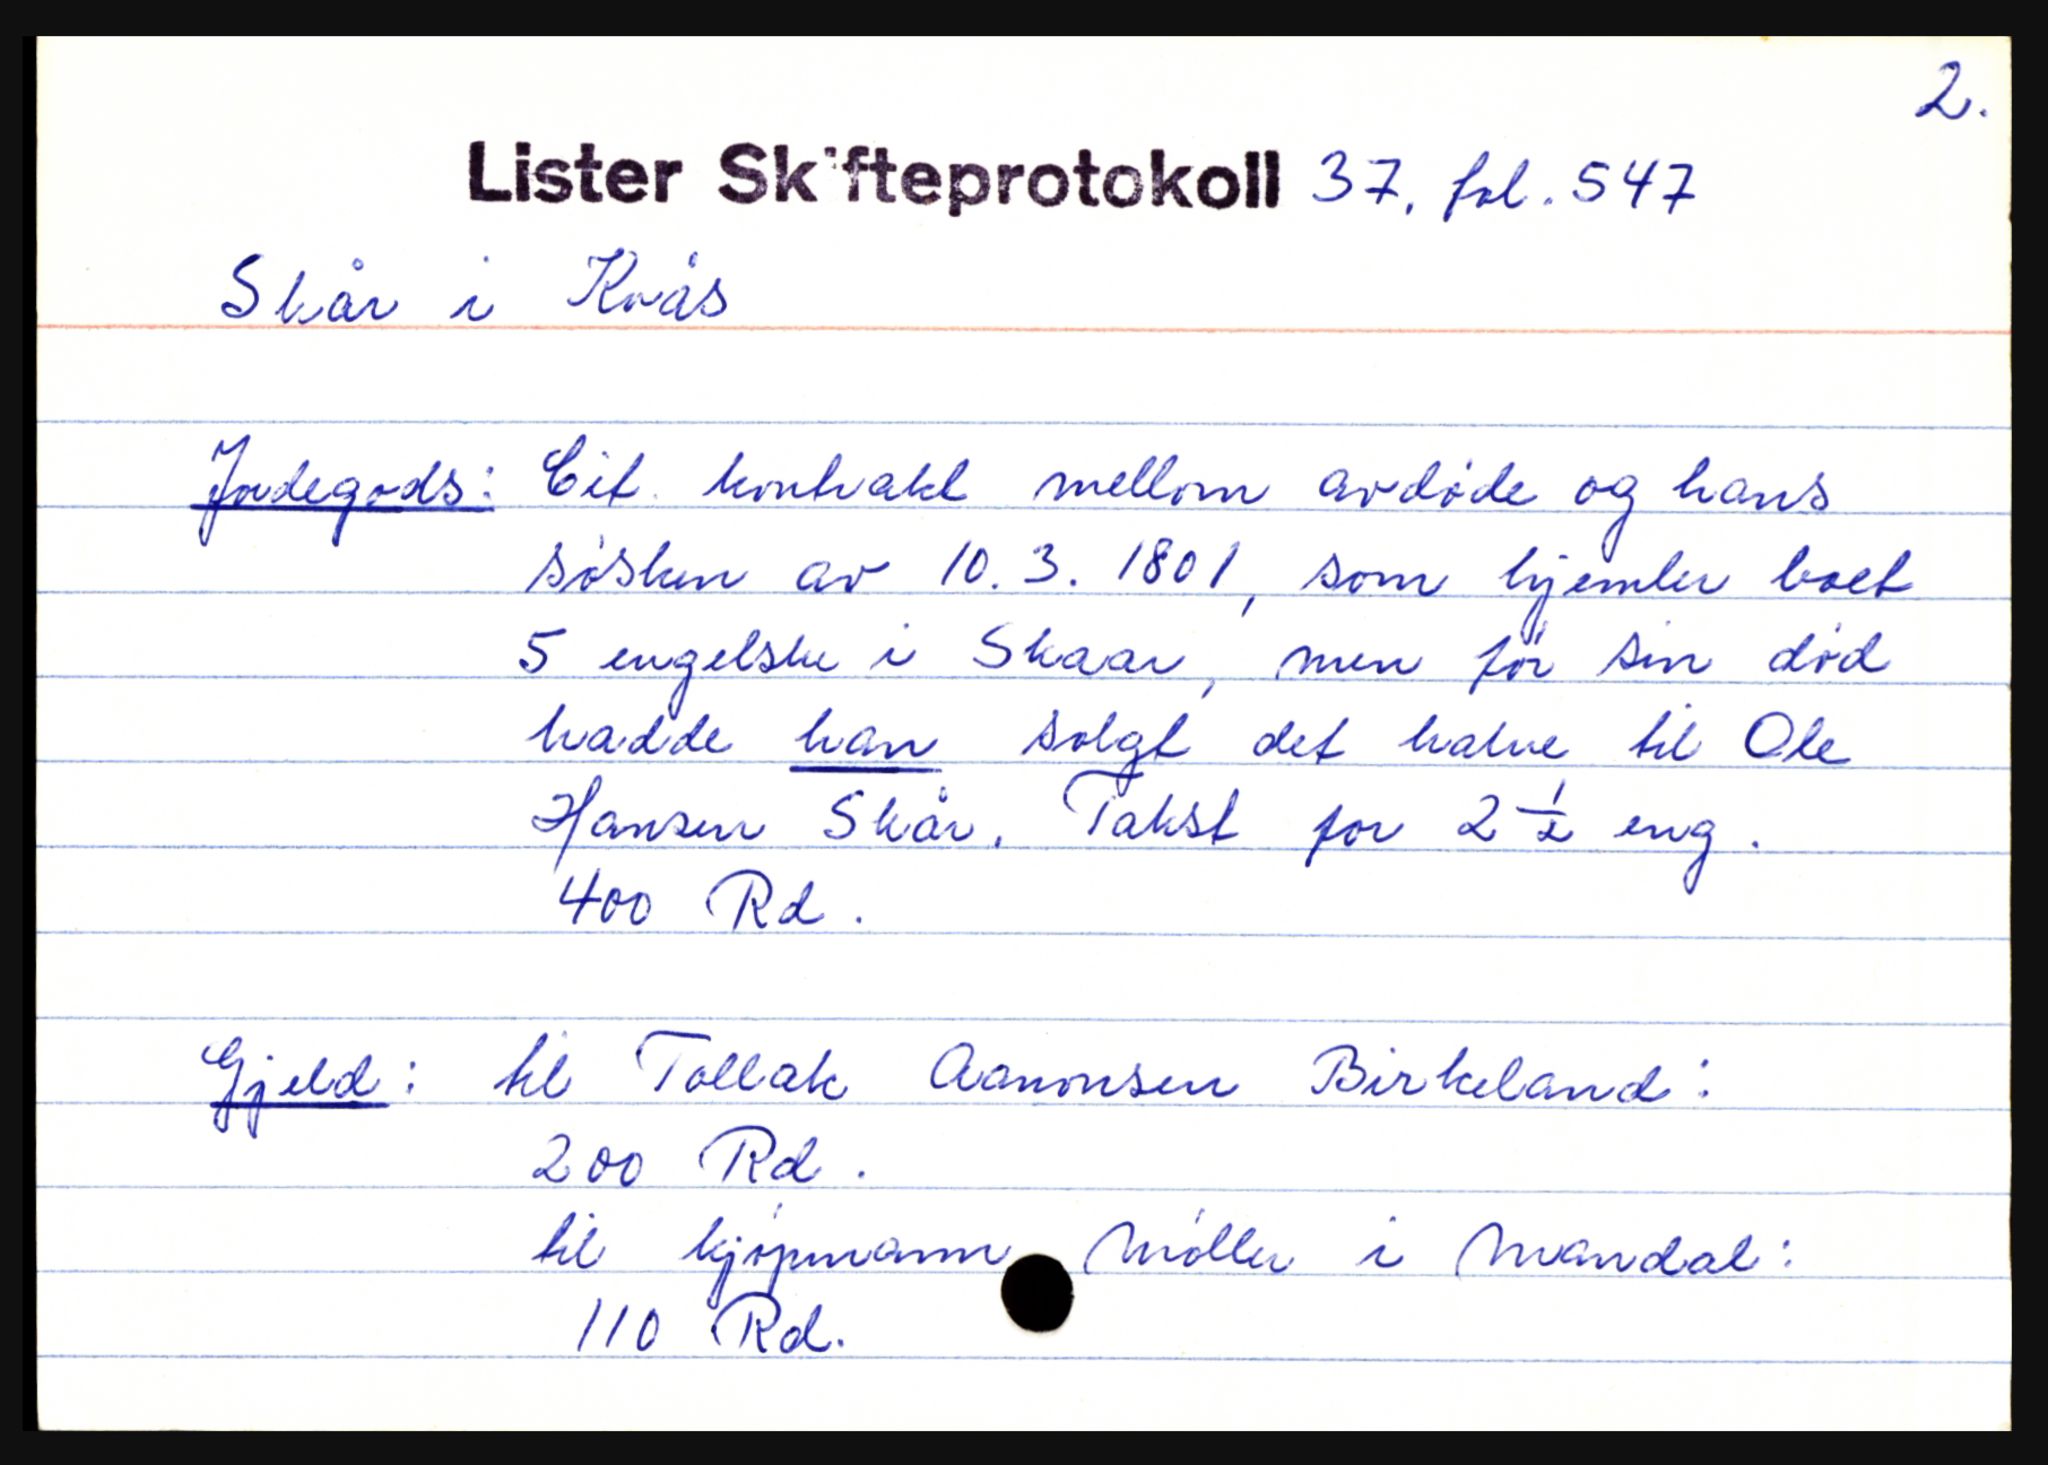 2.
Lister Skifteprotokoll 37, fol. 547
Skår i Kvås
Jordegods: Cit. kontrakt mellom avdøde og hans
søsken av 10. 3. 1801, som hjemler boet
5 engelske i Skaar, men før sin død
hadde han solgt det halve til Ole
Hansen Skår. Takst for 2 ½ eng.
400 Rd.
Gjeld: til Tollak Aanonsen Birkeland:
200 Rd.
til kjøpmann Møller i Mandal:
110 Rd.